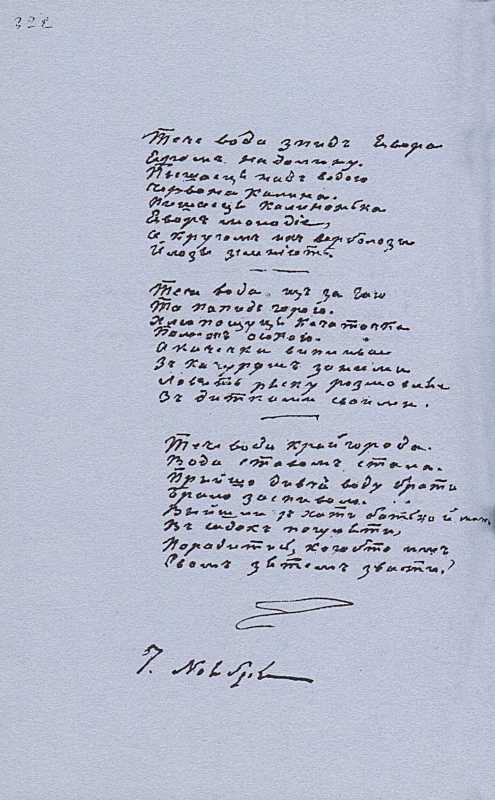 322
Тече вода зпидъ Явора
Яромъ надолину.
Пышаецця надъ водою
Червона калина.
Пишаецця Калинонька
Яворъ молодіе,
А кругомъ ихъ верболози
Й лози зеленіють.
Тече вода изъ за гаю
Та попидъ горою.
Хлюпощуцця качаточка
Помежъ осокою.
А качечка випливае
Зъ качуромъ за ними
Ловить ряску розмовляе
Зъ дитками своими.
Тече вода край города.
Вода ставомъ стала.
Прийшло дивча воду брати
Брало заспивало.
Выйшли зъ хати батько й мати
Въ садокъ погуляти,
Порадитьця, когобъто имъ
Своимъ зятемъ звати?
7. Ноября